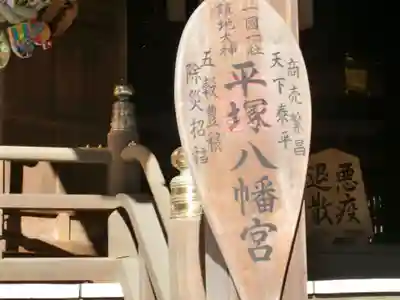 一國一社
鎮地大神
商売繁昌
天下泰平
平塚八幡宮
五穀豊穣
除災招福
悪疫
退散